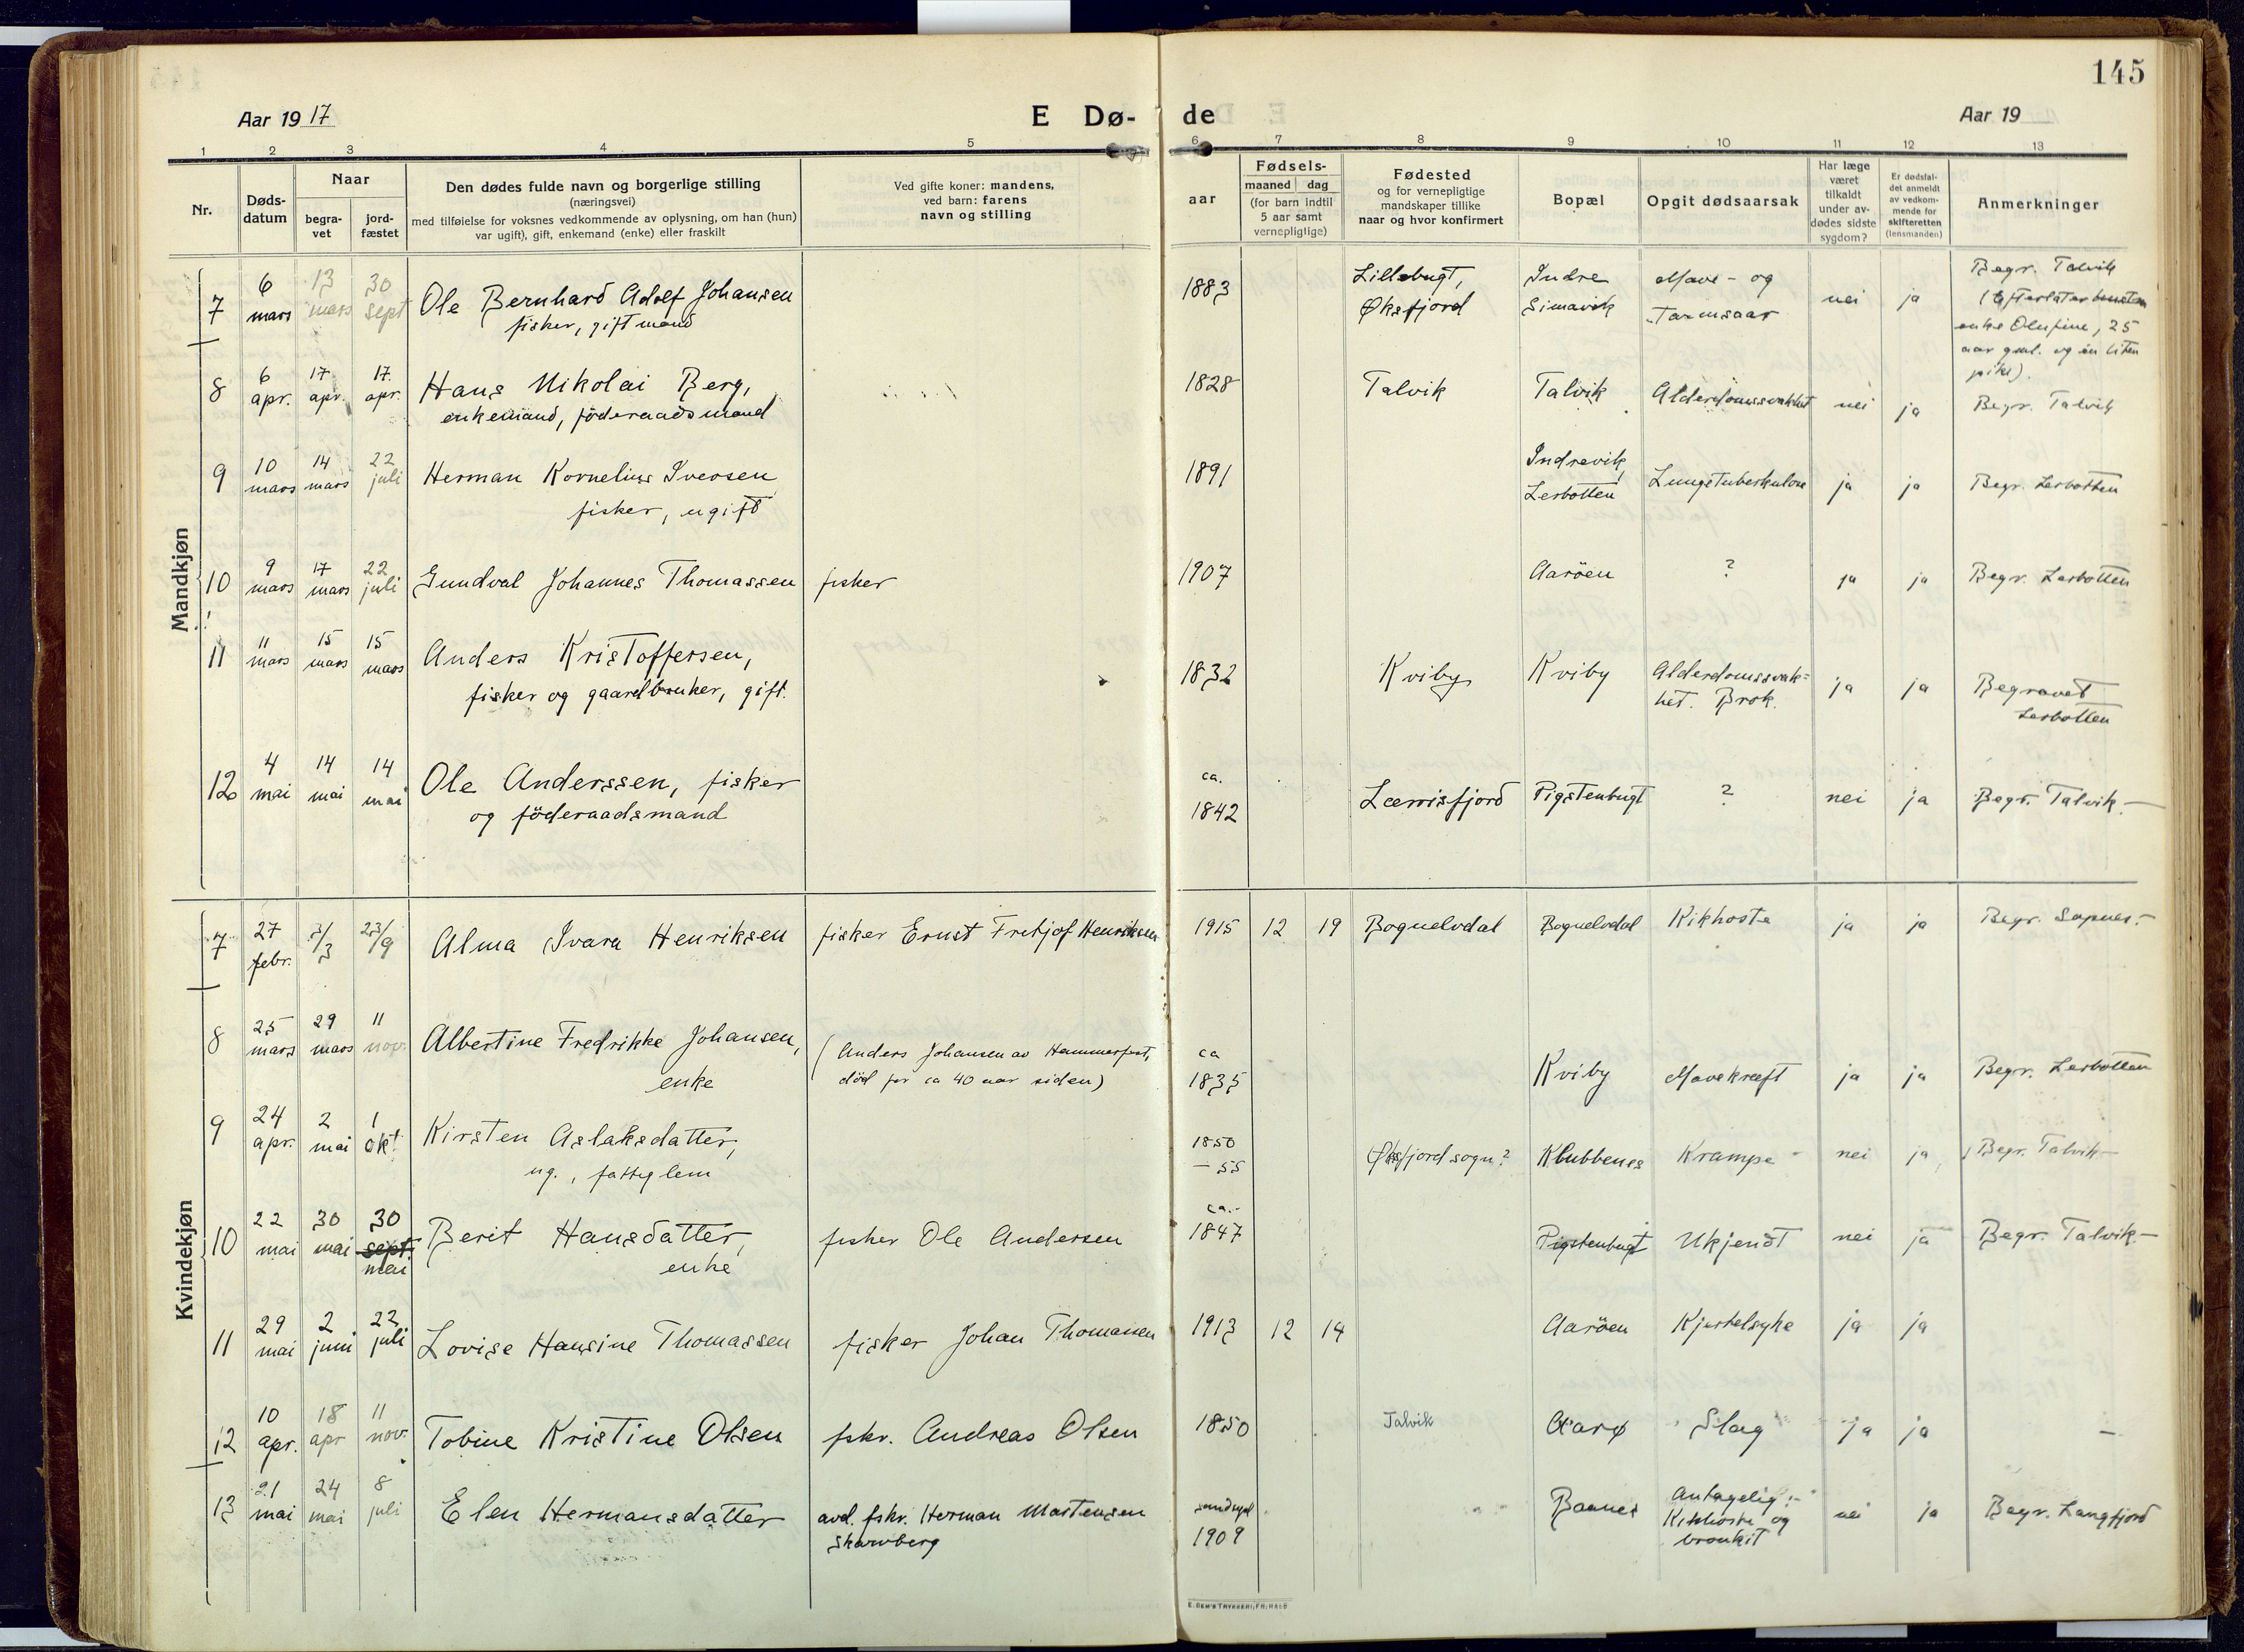 145
Aar 1917
E Dø-
de
Aar 19
1 2 3 4 5 6 7 8 9 10 11 12 13
Nr.
Døds-
datum
Naar
begra-
vet
jord-
fæstet
Den dødes fulde navn og borgerlige stilling
(næringsvei)
med tilføielse for voksnes vedkommende av oplysning, om han (hun)
var ugift), gift, enkemand (enke) eller fraskilt
Ved gifte koner: mandens,
ved barn: farens
navn og stilling
aar
Fødsels-
maaned dag
(for barn indtil
5 aar samt
vernepligtige)
Fødested
og for vernepligtige
mandskaper tillike
naar og hvor konfirmert
Bopæl
Opgit dødsaarsak
Har læge
været
tilkaldt
under av-
dødes sidste
sygdom?
Er dødsfal-
det anmeldt
av vedkom-
mende for
skifteretten
(lensmanden)
Anmerkninger
Mandkjøn
7
6
mars
13
mars
30
sept
Ole Bernhard Adolf Johansen
fisker, gift mand
1883
Lillebugt,
Øksfjord
Indre
Simavik
Mave- og
Tarmsaar
nei
ja
Begr. Talvik
enke Olufine, 25
aar gml. og én liten
pike).
8
6
apr.
17
apr.
17.
apr.
Hans Nikolai Berg,
enkemand, föderaadsmand
1828
Talvik
Talvik
Alderdomssvakhet
nei
ja
Begr. Talvik
9
10
mars
14
mars
22
juli
Herman Kornelius Iversen
fisker, ugift
1891
Indrevik,
Lerbotten
Lungetuberkulose
ja
ja
Begr. Lerbotten
10
9
mars
17
mars
22
juli
Gundval Johannes Thomassen
fisker
1907
Aaröen
?
ja
ja
Begr. Lerbotten
11
11
mars
15
mars
15
mars
Anders Kristoffersen,
fisker og gaardbruker, gift.
1832
Kviby
Kviby
Alderdomssvak=
het. Brok.
ja
ja
Begravet
Lerbotten
12
4
mai
14
mai
14
mai
Ole Anderssen, fisker
og föderaadsmand
ca.
1842
Lærrisfjord
Pigstenbugt
?
nei
ja
Begr. Talvik.—
Kvindekjøn
7
27
febr.
7/3
23/9
Alma Ivara Henriksen
fisker Ernst Fritjof Henriksen
1915
12
19
Bognelvdal
Bognelvdal
Kikhoste
ja
ja
Begr. Sopnes.—
8
25
mars
29
mars
11
nov.
Albertine Fredrikke Johansen,
enke
(Anders Johansen av Hammerfest,
död for ca 40 aar siden)
ca
1835
Kviby
Mavekræft
ja
ja
Begr. Lerbotten
9
24
apr.
2
mai
1
okt
Kirsten Aslaksdatter,
ug., fattiglem
1850
— 55
Øksfjord sogn?
Klubbenes
Krampe
nei
ja
Begr. Talvik—
10
22
mai
30
mai
30
sept.
mai
Berit Hansdatter,
enke
fisker Ole Andersen
ca.-
1847
Pigstenbugt
Ukjendt
nei
ja
Begr. Talvik.—
11
29
mai
2
juni
22
juli
Lovise Hansine Thomassen
fisker Johan Thomassen
1913
12
14
Aaröen
Kjertelsyke
ja
ja
12
10
apr.
18
apr
11
nov.
Tobine Kristine Olsen
fskr. Andreas Olsen
1850
Talvik
Aarø
Slag
ja
ja
—
13
21
mai
24
mai
8
juli
Elen Hermansdatter
avd. fskr. Herman Mortensen
Skarvberg
1909
Antagelig:-
Kikhoste og
bronkit
nei
ja
Begr. Langfjord